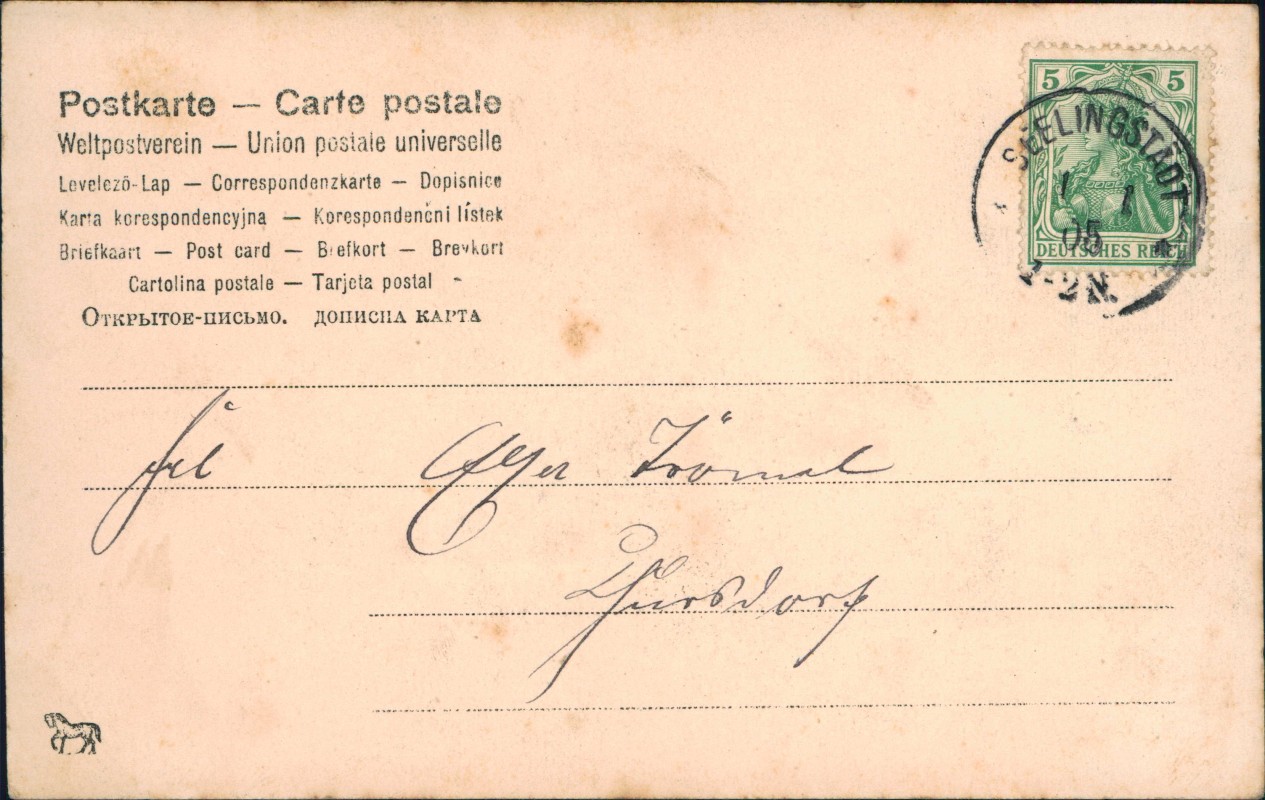 Postkarte — Carte postale
Weltpostverein — Union postale universelle
Levelező-Lap — Correspondenzkarte — Dopisnice
Karta korespondencyjna — Korespondenční lístek
Briefkaart — Post card — Brefkort — Brevkort
Cartolina postale — Tarjeta postal -
Открытое-письмо. дописна карта
5 5
DEUTSCHES REICH
SEELINGSTÄDT
1 1
05
1-2N.
Frl